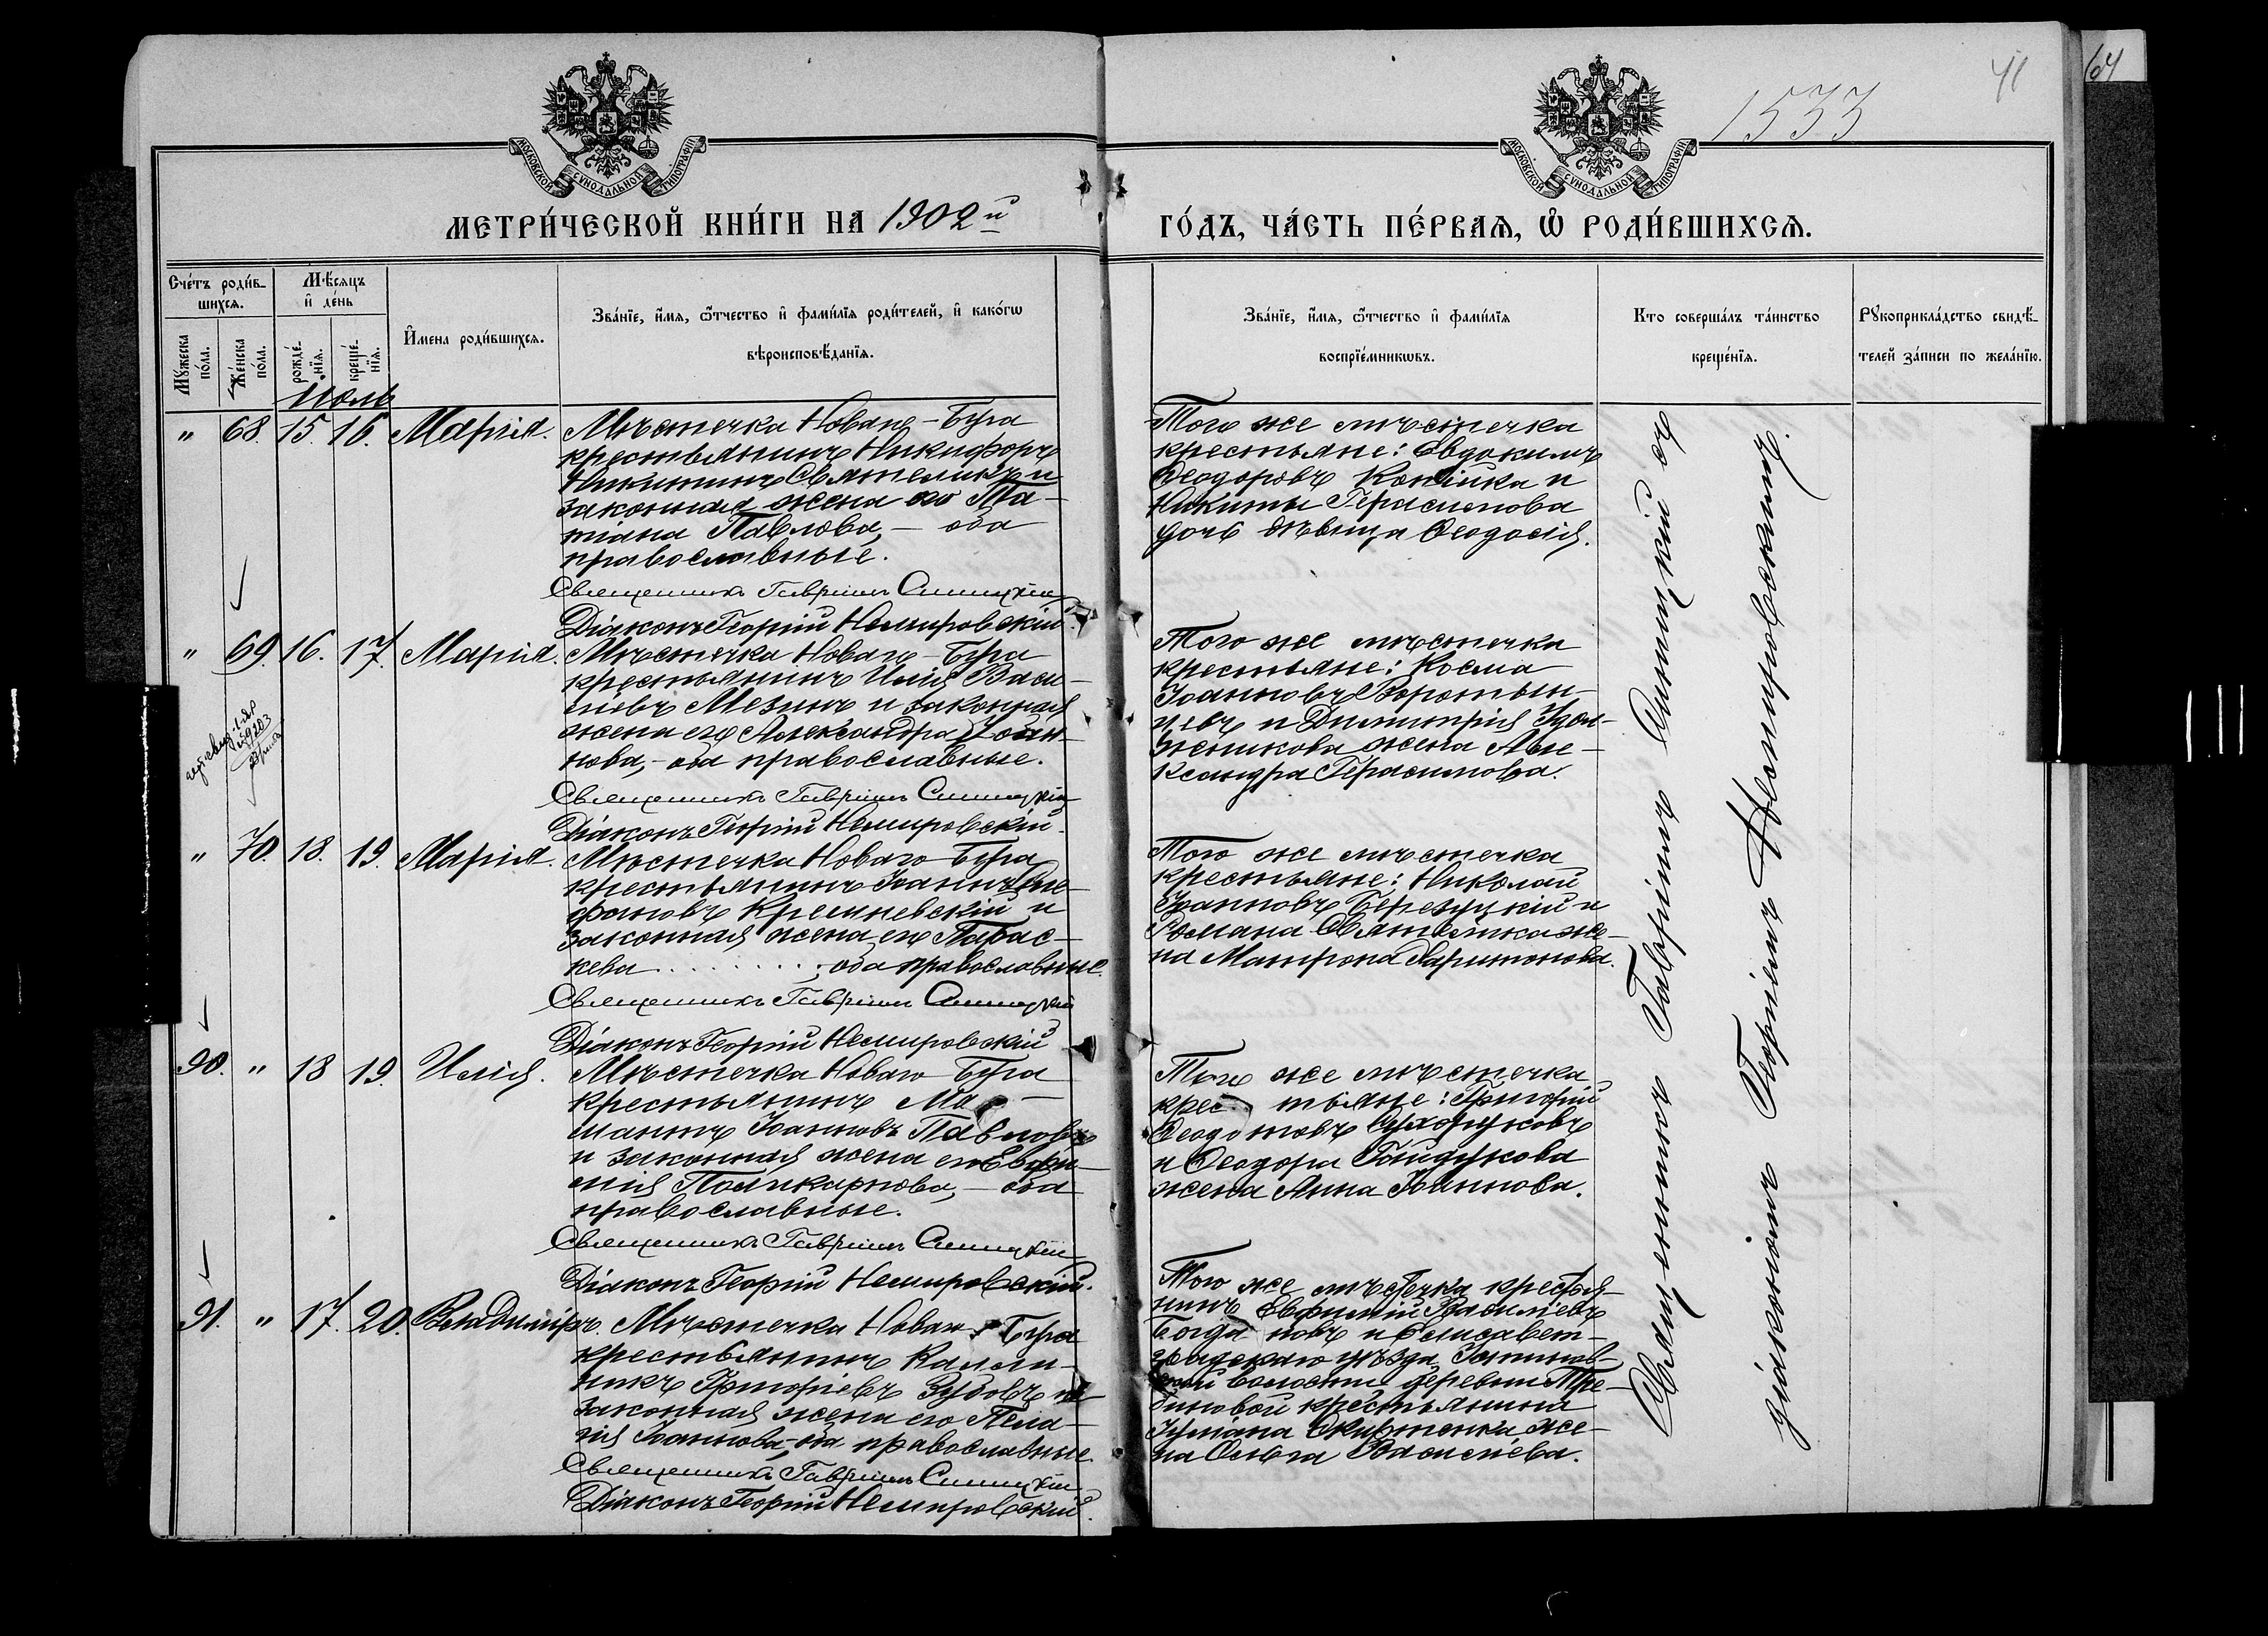 1533
41
64
МОСКОВСКОЙ СѴНОДАЛЬНОЙ ТИПОГРАФІИ
МОСКОВСКОЙ СѴНОДАЛЬНОЙ ТИПОГРАФІИ
МЕТРИ́ЧЕСКОЙ КНИ́ГИ НА 1902й
ГО́ДЪ, ЧА́СТЬ ПЕ́РВАЯ, Ѡ҆ РОДИ́ВШИХСЯ.
Сче́тъ роди́в-
шихся.
Мꙋ́жеска по́ла.
Же́нска по́ла.
Мѣ́сяцъ
и҆ де́нь
рожде́-
нїя.
креще́-
нїя.
И҆мена роди́вшихся.
Зва́нїе, и҆́мя, ѻ҆́тчество и҆ фами́лїя роди́телей, и҆ како́гѡ
вѣроисповѣ́данїя.
Зва́нїе, и҆́мя, ѻ҆́тчество и҆ фами́лїя
воспрїе́мникѡвъ.
Кто соверша́лъ та́инство
креще́нїя.
Рꙋкоприкла́дство свидѣ́-
телей за́писи по жела́нїю.
Іюль
" 68. 15. 16. Марія.
Мѣстечка Новаго-Буга
крестьянинъ Никифоръ
Никитинъ Святеликъ и
законная жена его Та-
тіана Павлова, - оба
православные.
Священникъ Гавріилъ Синицкій
Діаконъ Георгій Немировскій.
Того же мѣстечка
крестьяне: Евдокимъ
Ѳеодоровъ Копійка и
Никиты Герасимова
дочь дѣвица Ѳеодосія.
" 69. 16. 17. Марія.
Мѣстечка Новаго-Буга
крестьянинъ Илія Васи-
ліевъ Мезинъ и законная
жена его Александра Іоан-
нова, - оба православные.
Священникъ Гавріилъ Синицкій
Діаконъ Георгій Немировскій.
Того же мѣстечка
крестьяне: Косма
Іоанновъ Воротын-
цевъ и Димитрія
жена Але-
ксандра Герасимова.
" 70. 18. 19. Марія.
Мѣстечка Новаго Буга
крестьянинъ Іоаннъ Сте-
фановъ Кремневскій и
законная жена его Парас-
кева . . . . . . . . , оба православные.
Священникъ Гавріилъ Синицкій
Діаконъ Георгій Немировскій
Того же мѣстечка
крестьяне: Николай
Іоанновъ Березуцкій и
Романа Святелика же-
на Матрона Харитонова.
90. " 18 19. Илія.
Мѣстечка Новаго Буга
крестьянинъ Ма-
Іоанновъ Павловъ
и законная жена его Евфи-
мія Поликарпова, - оба
православные.
Священникъ Гавріилъ Синицкій
Діаконъ Георгій Немировскій.
Того же мѣстечка
крестьяне: Григорій
Ѳеодотовъ Сухоруковъ
и Ѳеодора Гайдукова
жена Анна Іоаннова.
91. " 17. 20. Владиміръ.
Мѣстечка Новаго Буга
крестьянинъ Калли-
никъ Григоріевъ Зубовъ и
законная жена его Пела-
гія Іоаннова, оба православные.
Священникъ Гавріилъ Синицкій
Діаконъ Георгій Немировскій.
Того же мѣстечка крестья-
нинъ Евфимій Василіевъ
Богдановъ и Елисавет-
градскаго уѣзда
волости деревни
крестьянина
же-
на Ольга Василіева.
Священникъ Гавріилъ Синицкій съ
діакономъ Георгіемъ Немировскимъ.